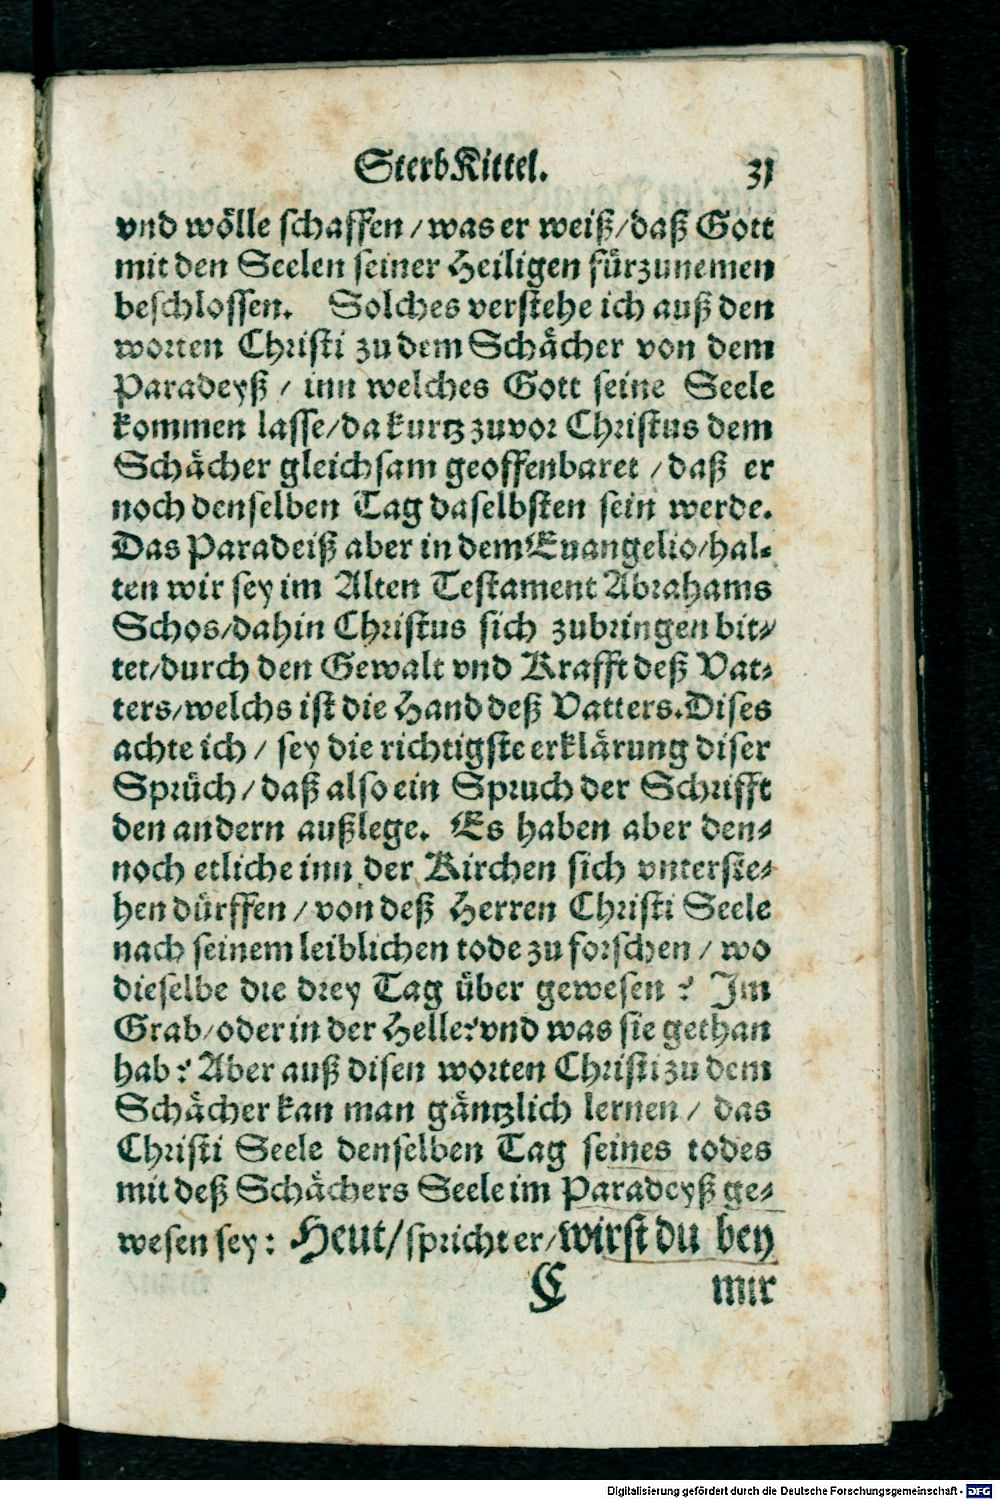 SterbKittel. 31
vnd wölle schaffen / was er weiß / daß Gott
mit den Seelen seiner Heiligen fürzunemen
beschlossen. Solches verstehe ich auß den
worten Christi zu dem Schächer von dem
Paradeyß / inn welches Gott seine Seele
kommen lasse / da kurtz zuvor Christus dem
Schächer gleichsam geoffenbaret / daß er
noch denselben Tag daselbsten sein werde.
Das Paradeiß aber in dem Euangelio / hal-
ten wir sey im Alten Testament Abrahams
Schos / dahin Christus sich zubringen bit-
tet / durch den Gewalt vnd Krafft deß Vat-
ters / welchs ist die Hand deß Vatters. Dises
achte ich / sey die richtigste erklärung diser
Sprüch / daß also ein Spruch der Schrifft
den andern außlege. Es haben aber den-
noch etliche inn der Kirchen sich vnterste-
hen dürffen / von deß Herren Christi Seele
nach seinem leiblichen tode zu forschen / wo
dieselbe die drey Tag über gewesen? Im
Grab / oder in der Helle? vnd was sie gethan
hab? Aber auß disen worten Christi zu dem
Schächer kan man gäntzlich lernen / das
Christi Seele denselben Tag seines todes
mit deß Schächers Seele im Paradeyß ge-
wesen sey: Heut / spricht er / wirst du bey
C mir
Digitalisierung gefördert durch die Deutsche Forschungsgemeinschaft - DFG